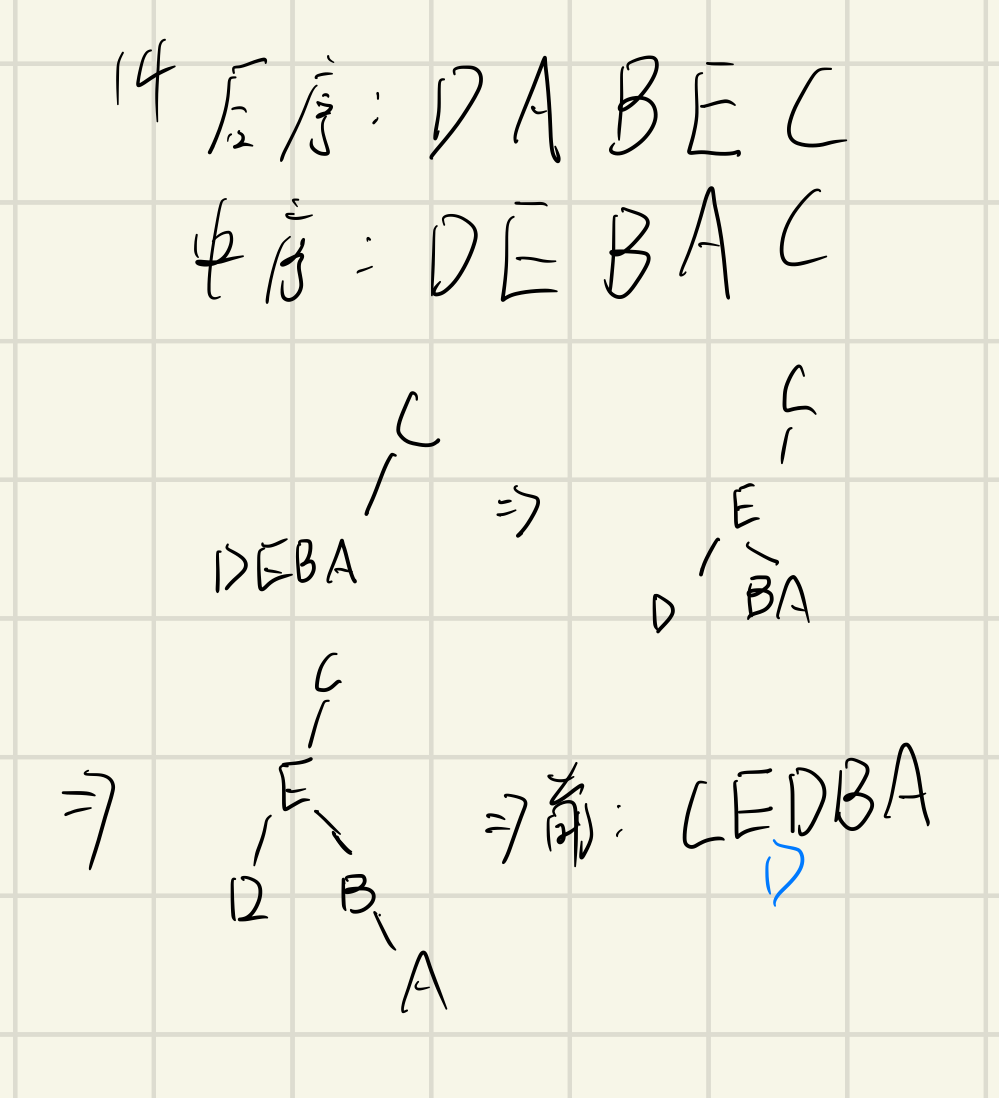 14 后序: DABEC
中序: DEBAC
C
DEBA
⇒
C
E
D BA
⇒
C
E
D B
A
⇒ 前: CEDBA
D